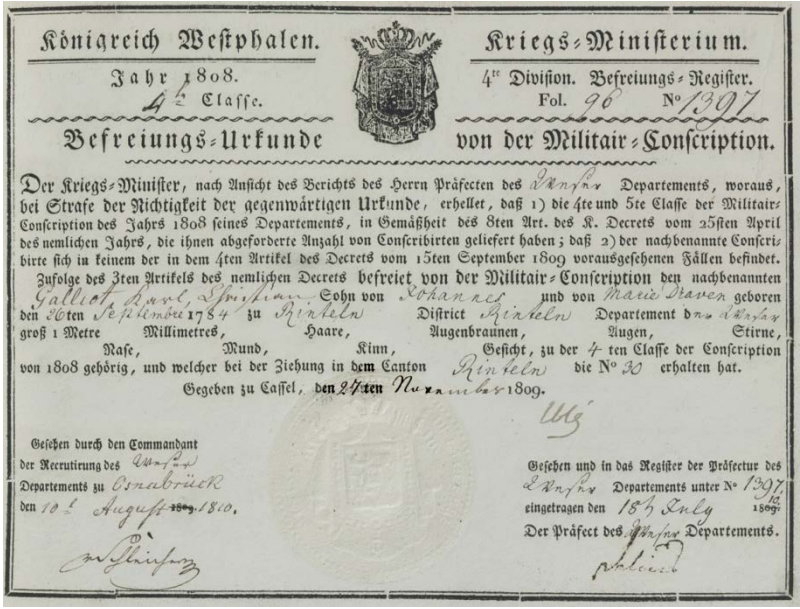 Königreich Westphalen.
Kriegs-Ministerium.
Jahr 1808.
4te Classe.
4te Division. Befreiungs-Register.
Fol. 96 No 1397
Befreiungs-Urkunde von der Militair-Conscription.
Der Kriegs-Minister, nach Ansicht des Berichts des Herrn Präfecten des Weser Departements, woraus,
bei Strafe der Nichtigkeit der gegenwärtigen Urkunde, erhellet, daß 1) die 4te und 5te Classe der Militair-
Conscription des Jahrs 1808 seines Departements, in Gemäßheit des 8ten Art. des K. Decrets vom 25sten April
des nemlichen Jahrs, die ihnen abgeforderte Anzahl von Conscribirten geliefert haben; daß 2) der nachbenannte Conscri-
birte sich in keinem der in dem 4ten Artikel des Decrets vom 15ten September 1809 vorausgesehenen Fällen befindet.
Zufolge des 3ten Artikels des nemlichen Decrets befreiet von der Militair-Conscription den nachbenannten
Galliot, Karl, Christian Sohn von Johannes und von Marie Draven geboren
den 26ten Septembre 1784 zu Rinteln District Rinteln Departement der Weser
groß 1 Metre Millimetres, Haare, Augenbraunen, Augen, Stirne,
Nase, Mund, Kinn, Gesicht, zu der 4 ten Classe der Conscription
von 1808 gehörig, und welcher bei der Ziehung in dem Canton Rinteln die No 30 erhalten hat.
Gegeben zu Cassel, den 24ten November 1809.
Gesehen durch den Commandant
der Recrutirung des Weser
Departements zu Osnabrück
den 10t August 1809. 1810.
Gesehen und in das Register der Präfectur des
Weser Departements unter No 1397
eingetragen den 18t July 1809. 10.
Der Präfect des Weser Departements.